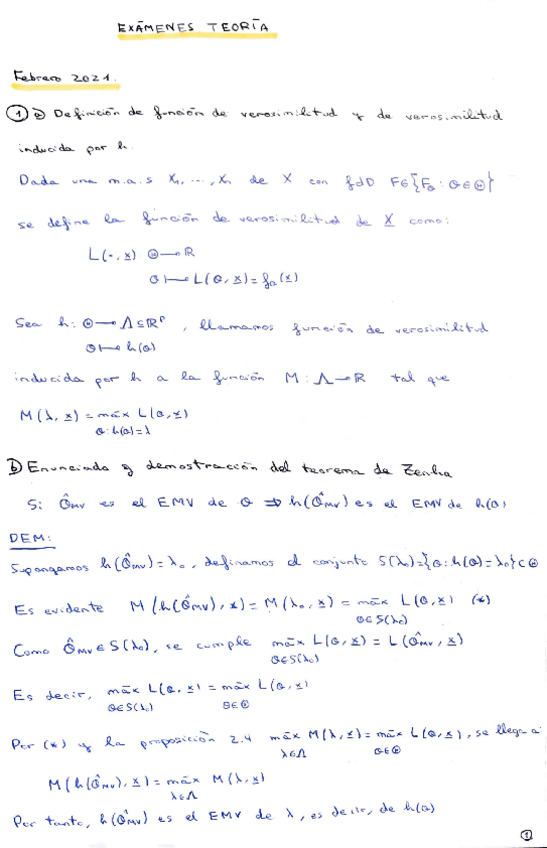 EXÁMENES TEORÍA
Febrero 2021.
① a) Definición de función de verosimilitud y de verosimilitud
inducida por h.
Dada una m.a.s X₁, ..., Xₙ de X con fdD F∈{F_θ : θ∈Θ}
se define la función de verosimilitud de X como:
L(·, x) Θ → ℝ
θ ↦ L(θ, x) = f_θ(x)
Sea h: Θ → Λ ⊆ ℝᵖ, llamamos función de verosimilitud
θ ↦ h(θ)
inducida por h a la función M: Λ → ℝ tal que
M(λ, x) = máx L(θ, x)
θ: h(θ)=λ
b) Enunciado y demostración del teorema de Zehna
Si θ̂_MV es el EMV de θ ⟹ h(θ̂_MV) es el EMV de h(θ)
DEM:
Supongamos h(θ̂_MV) = λ₀, definamos el conjunto S(λ₀) = {θ: h(θ) = λ₀} ⊂ Θ
Es evidente M(h(θ̂_MV), x) = M(λ₀, x) = máx L(θ, x) (*)
θ∈S(λ₀)
Como θ̂_MV ∈ S(λ₀), se cumple máx L(θ, x) = L(θ̂_MV, x)
θ∈S(λ₀)
Es decir, máx L(θ, x) = máx L(θ, x)
θ∈S(λ₀) θ∈Θ
Por (*) y la proposición 2.4 máx M(λ, x) = máx L(θ, x), se llega a:
λ∈Λ θ∈Θ
M(h(θ̂_MV), x) = máx M(λ, x)
λ∈Λ
Por tanto, h(θ̂_MV) es el EMV de λ, es decir, de h(θ)
①